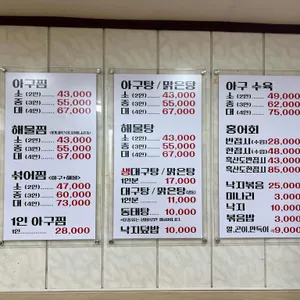 아구찜
소 (2인) ---- 43,000
중 (3인) ---- 55,000
대 (4인) ---- 67,000
해물찜
소 (2인) ---- 43,000
중 (3인) ---- 55,000
대 (4인) ---- 67,000
섞어찜 (아구+해물)
소 (2인) ---- 47,000
중 (3인) ---- 60,000
대 (4인) ---- 73,000
1인 아구찜
1인 ---- 28,000
아구탕 / 맑은탕
소 (2인) ---- 43,000
중 (3인) ---- 55,000
대 (4인) ---- 67,000
해물탕
소 (2인) ---- 43,000
중 (3인) ---- 55,000
대 (4인) ---- 67,000
생대구탕 / 맑은탕
1인분 ---- 17,000
대구탕 / 맑은탕
1인분 ---- 11,000
동태탕 ---- 10,000
낙지덮밥 ---- 10,000
아구 수육
소 (2인) ---- 49,000
중 (3인) ---- 62,000
대 (4인) ---- 75,000
홍어회
반접시 28,000
한접시 48,000
흑산도반접시 45,000
흑산도한접시 85,000
낙지볶음 ---- 25,000
미나리 ---- 3,000
낙지 ---- 10,000
볶음밥 ---- 3,000
알,곤이,만득이 ---- 9,000